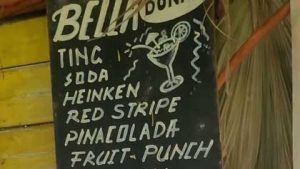 BELLA
TING
SODA
HEINKEN
RED STRIPE
PINACOLADA
FRUIT-PUNCH